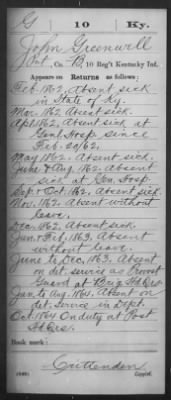 G 10 Ky.
John Greenwell
Pvt., Co. B, 10 Reg't Kentucky Inf.
Appears on Returns as follows:
Feb. 1862, Absent sick
in State of Ky.
Mar. 1862, Absent sick.
Apr. 1862, Absent sick at
Genl. Hosp. since
Feb. 20/62.
May 1862. Absent sick.
June & Aug. 1862, Absent
sick at Gen. Hosp.
Sept. & Oct. 1862, Absent sick.
Nov. 1862, Absent without
leave.
Dec. 1862, Absent sick.
Jan. & Feb. 1863, Absent
without leave.
June to Dec. 1863, Absent
on det. service as Provost
Guard at Brig. Hd. Qrs.
Jan. to Aug. 1864, Absent on
det. service in Dept.
Oct. 1864 On duty at Post
Hd. Qrs.
Book mark:
Crittenden
Copyist.